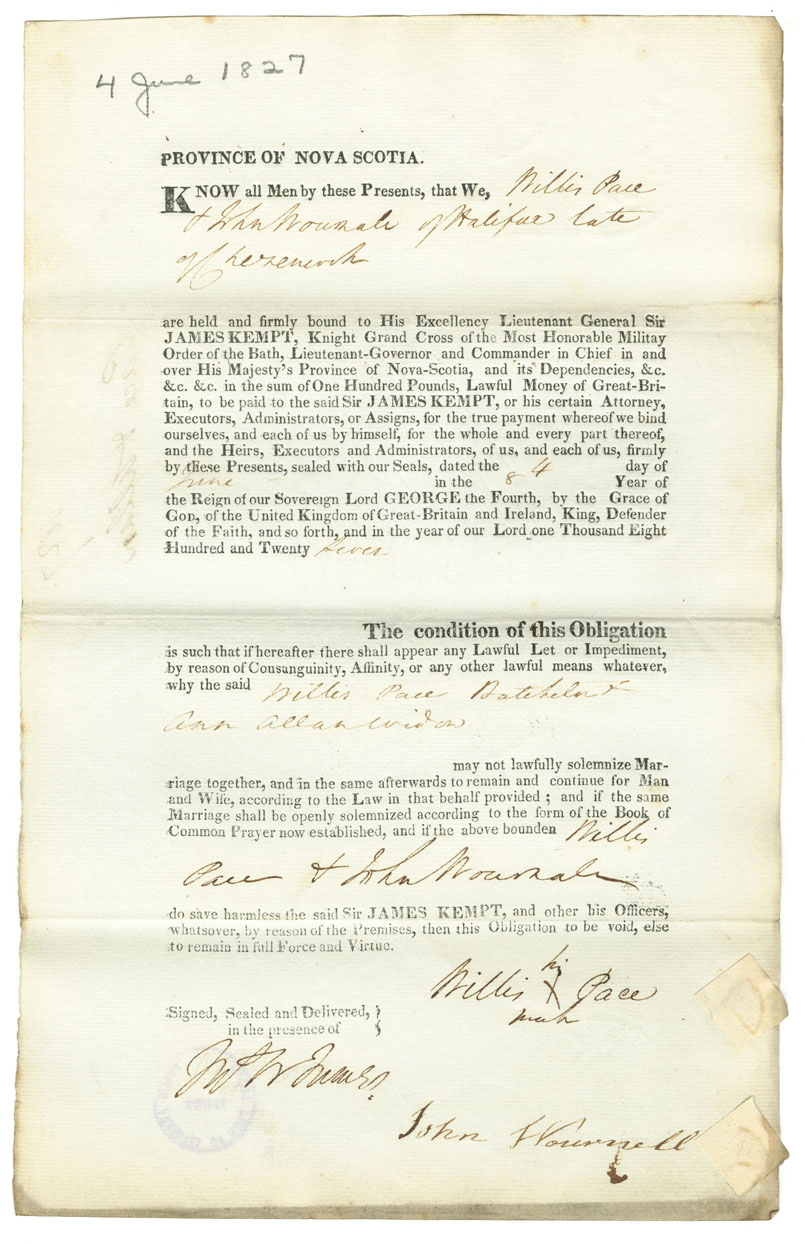 4 June 1827
PROVINCE OF NOVA SCOTIA.
KNOW all Men by these Presents, that We, Willis Pace
& John of Halifax late
of
are held and firmly bound to His Excellency Lieutenant General Sir
JAMES KEMPT, Knight Grand Cross of the Most Honorable Militay
Order of the Bath, Lieutenant-Governor and Commander in Chief in and
over His Majesty's Province of Nova-Scotia, and its Dependencies, &c.
&c. &c. in the sum of One Hundred Pounds, Lawful Money of Great-Bri-
tain, to be paid to the said Sir JAMES KEMPT, or his certain Attorney,
Executors, Administrators, or Assigns, for the true payment whereof we bind
ourselves, and each of us by himself, for the whole and every part thereof,
and the Heirs, Executors and Administrators, of us, and each of us, firmly
by these Presents, sealed with our Seals, dated the 4 day of
June in the 8 Year of
the Reign of our Sovereign Lord GEORGE the Fourth, by the Grace of
GOD, of the United Kingdom of Great-Britain and Ireland, King, Defender
of the Faith, and so forth, and in the year of our Lord one Thousand Eight
Hundred and Twenty Seven
The condition of this Obligation
is such that if hereafter there shall appear any Lawful Let or Impediment,
by reason of Cousanguinity, Affinity, or any other lawful means whatever,
why the said Willis Pace Batchelor &
Ann Allan Widow
may not lawfully solemnize Mar-
riage together, and in the same afterwards to remain and continue for Man
and Wife, according to the Law in that behalf provided; and if the same
Marriage shall be openly solemnized according to the form of the Book of
Common Prayer now established, and if the above bounden Willis
Pace & John
do save harmless the said Sir JAMES KEMPT, and other his Officers,
whatsover, by reason of the Premises, then this Obligation to be void, else
to remain in full Force and Virtue.
his
Willis X Pace
mark
Signed, Sealed and Delivered, }
in the presence of }
John Wournell